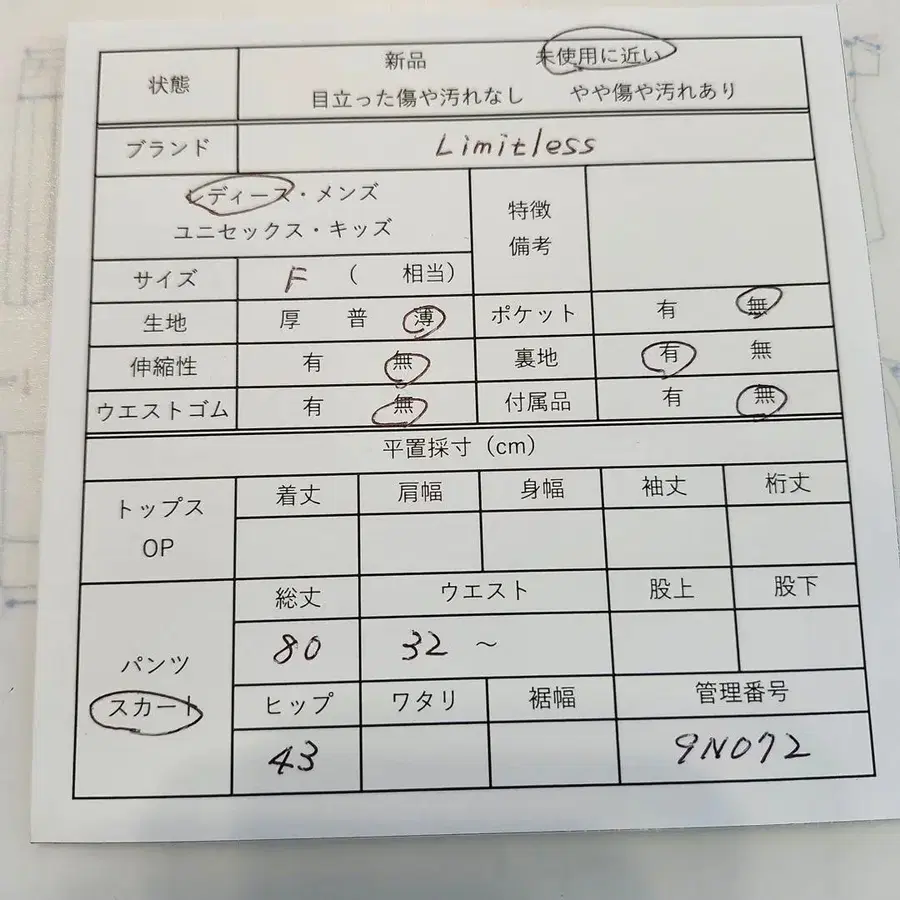 状態
新品 未使用に近い
目立った傷や汚れなし やや傷や汚れあり
ブランド Limitless
レディース・メンズ
ユニセックス・キッズ
特徴
備考
サイズ F ( 相当)
生地 厚 普 薄 ポケット 有 無
伸縮性 有 無 裏地 有 無
ウエストゴム 有 無 付属品 有 無
平置採寸（cm）
トップス
OP
着丈 肩幅 身幅 袖丈 裄丈
パンツ
スカート
総丈 ウエスト 股上 股下
80 32 ～
ヒップ ワタリ 裾幅 管理番号
43 9N072